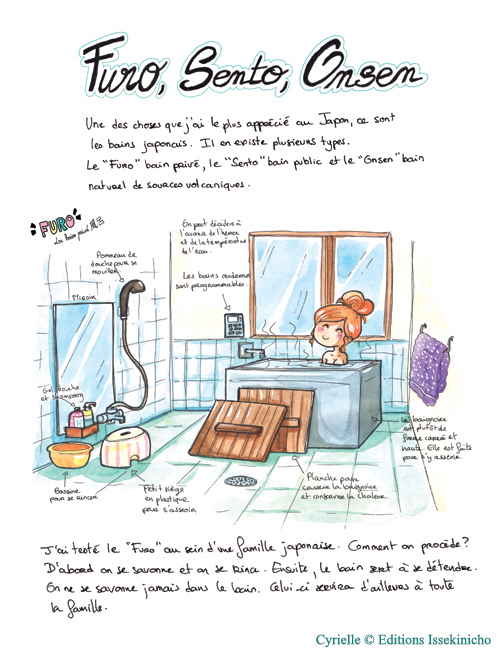 Furo, Sento, Onsen
Une des choses que j'ai le plus apprécié au Japon, ce sont
les bains japonais. Il en existe plusieurs types.
Le "Furo" bain privé, le "Sento" bain public et le "Onsen" bain
naturel de sources volcaniques.
FURO
Le bain privé
On peut décider à
l'avance de l'heure
et de la température
de l'eau.
Les bains modernes
sont programmables.
Pommeau de
douche pour se
mouiller
Miroir
Gel douche
et shampoing
Bassine
pour se rincer
Petit siège
en plastique
pour s'asseoir
Planche pour
couvrir la baignoire
et conserver la chaleur.
La baignoire
est plutôt de
forme carrée et
haute. Elle est faite
pour s'y asseoir.
J'ai testé le "Furo" au sein d'une famille japonaise. Comment on procède?
D'abord on se savonne et on se rince. Ensuite, le bain sert à se détendre.
On ne se savonne jamais dans le bain. Celui-ci servira d'ailleurs à toute
la famille.
Cyrielle © Editions Issekinicho